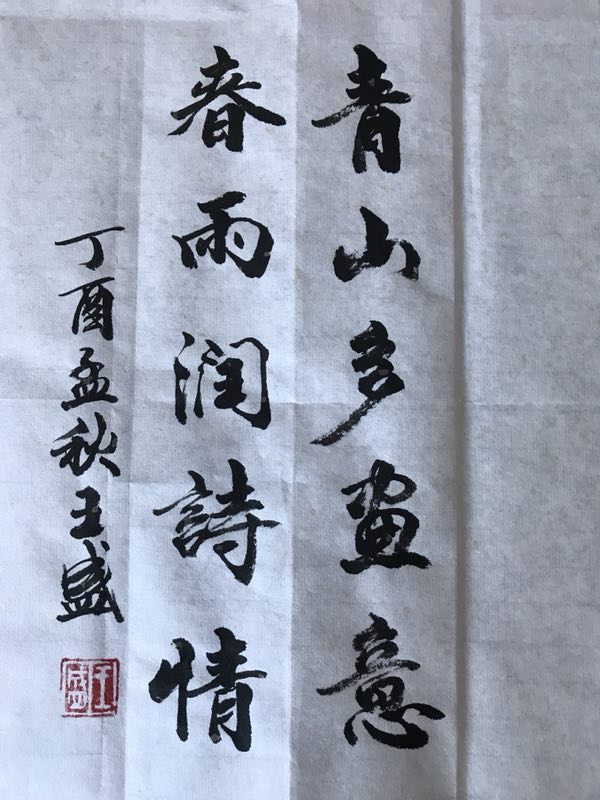 青山多畫意
春雨润詩情
丁酉孟秋王盛
王盛